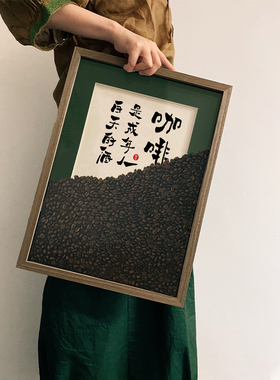 咖啡
是成年人
白天的酒